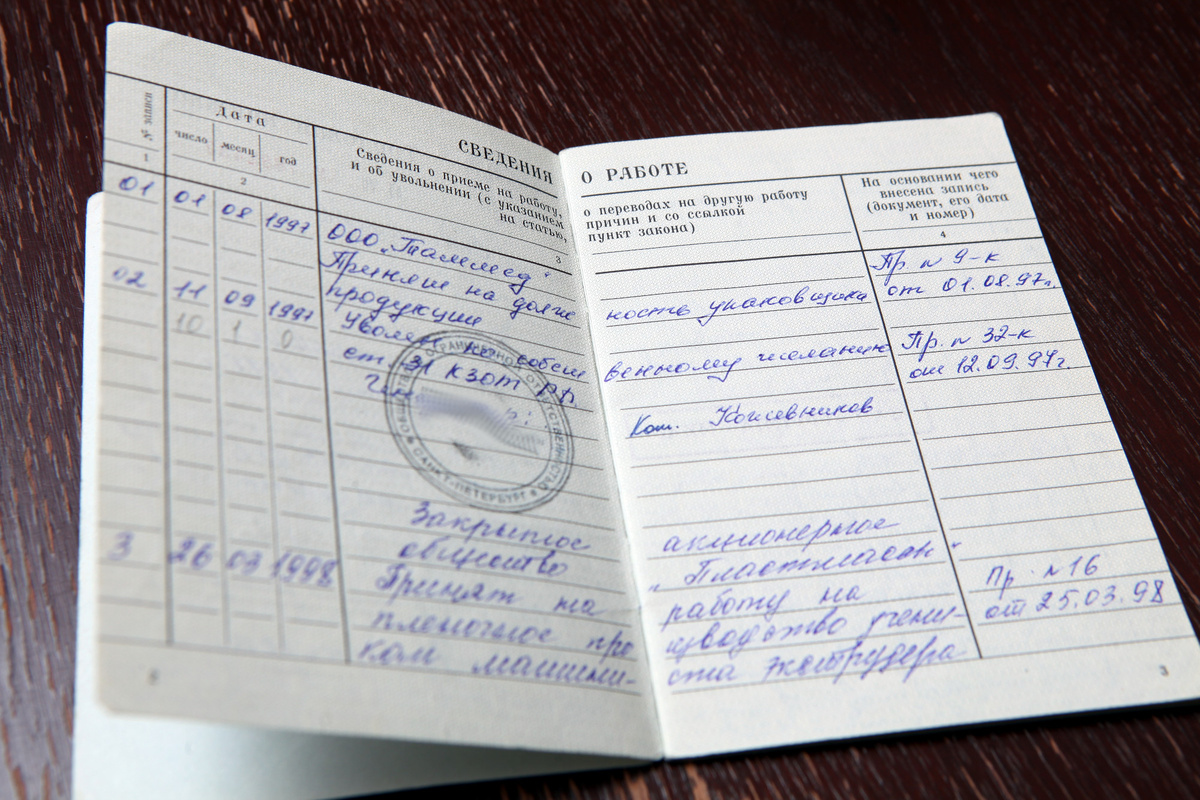 СВЕДЕНИЯ О РАБОТЕ
№ записи
Дата
число месяц год
Сведения о приеме на работу,
и об увольнении (с указанием
на статью,
о переводах на другую работу
причин и со ссылкой
пункт закона)
На основании чего
внесена запись
(документ, его дата
и номер)
1 2 3 4
ООО „Таммед"
01 01 08 1997 Принят на долж ность упаковщика Пр. n 9-к
продукции от 01.08.97г.
02 11 09 1997 Уволен по собст венному желанию Пр. n 32-к
10 1 0 ст 31 КЗОТ РФ от 12.09.97г.
Кожевников
ОБЩЕСТВО ОГРАНИЧЕННОЙ ОТВЕТСТВЕННОСТЬЮ
САНКТ-ПЕТЕРБУРГ
Закрытое акционерное
общество „Пластполиен"
3 26 03 1998 Принят на работу на Пр. n 16
пленочное про изводство учени- от 25.03.98
ком машини- ста экструдера
3